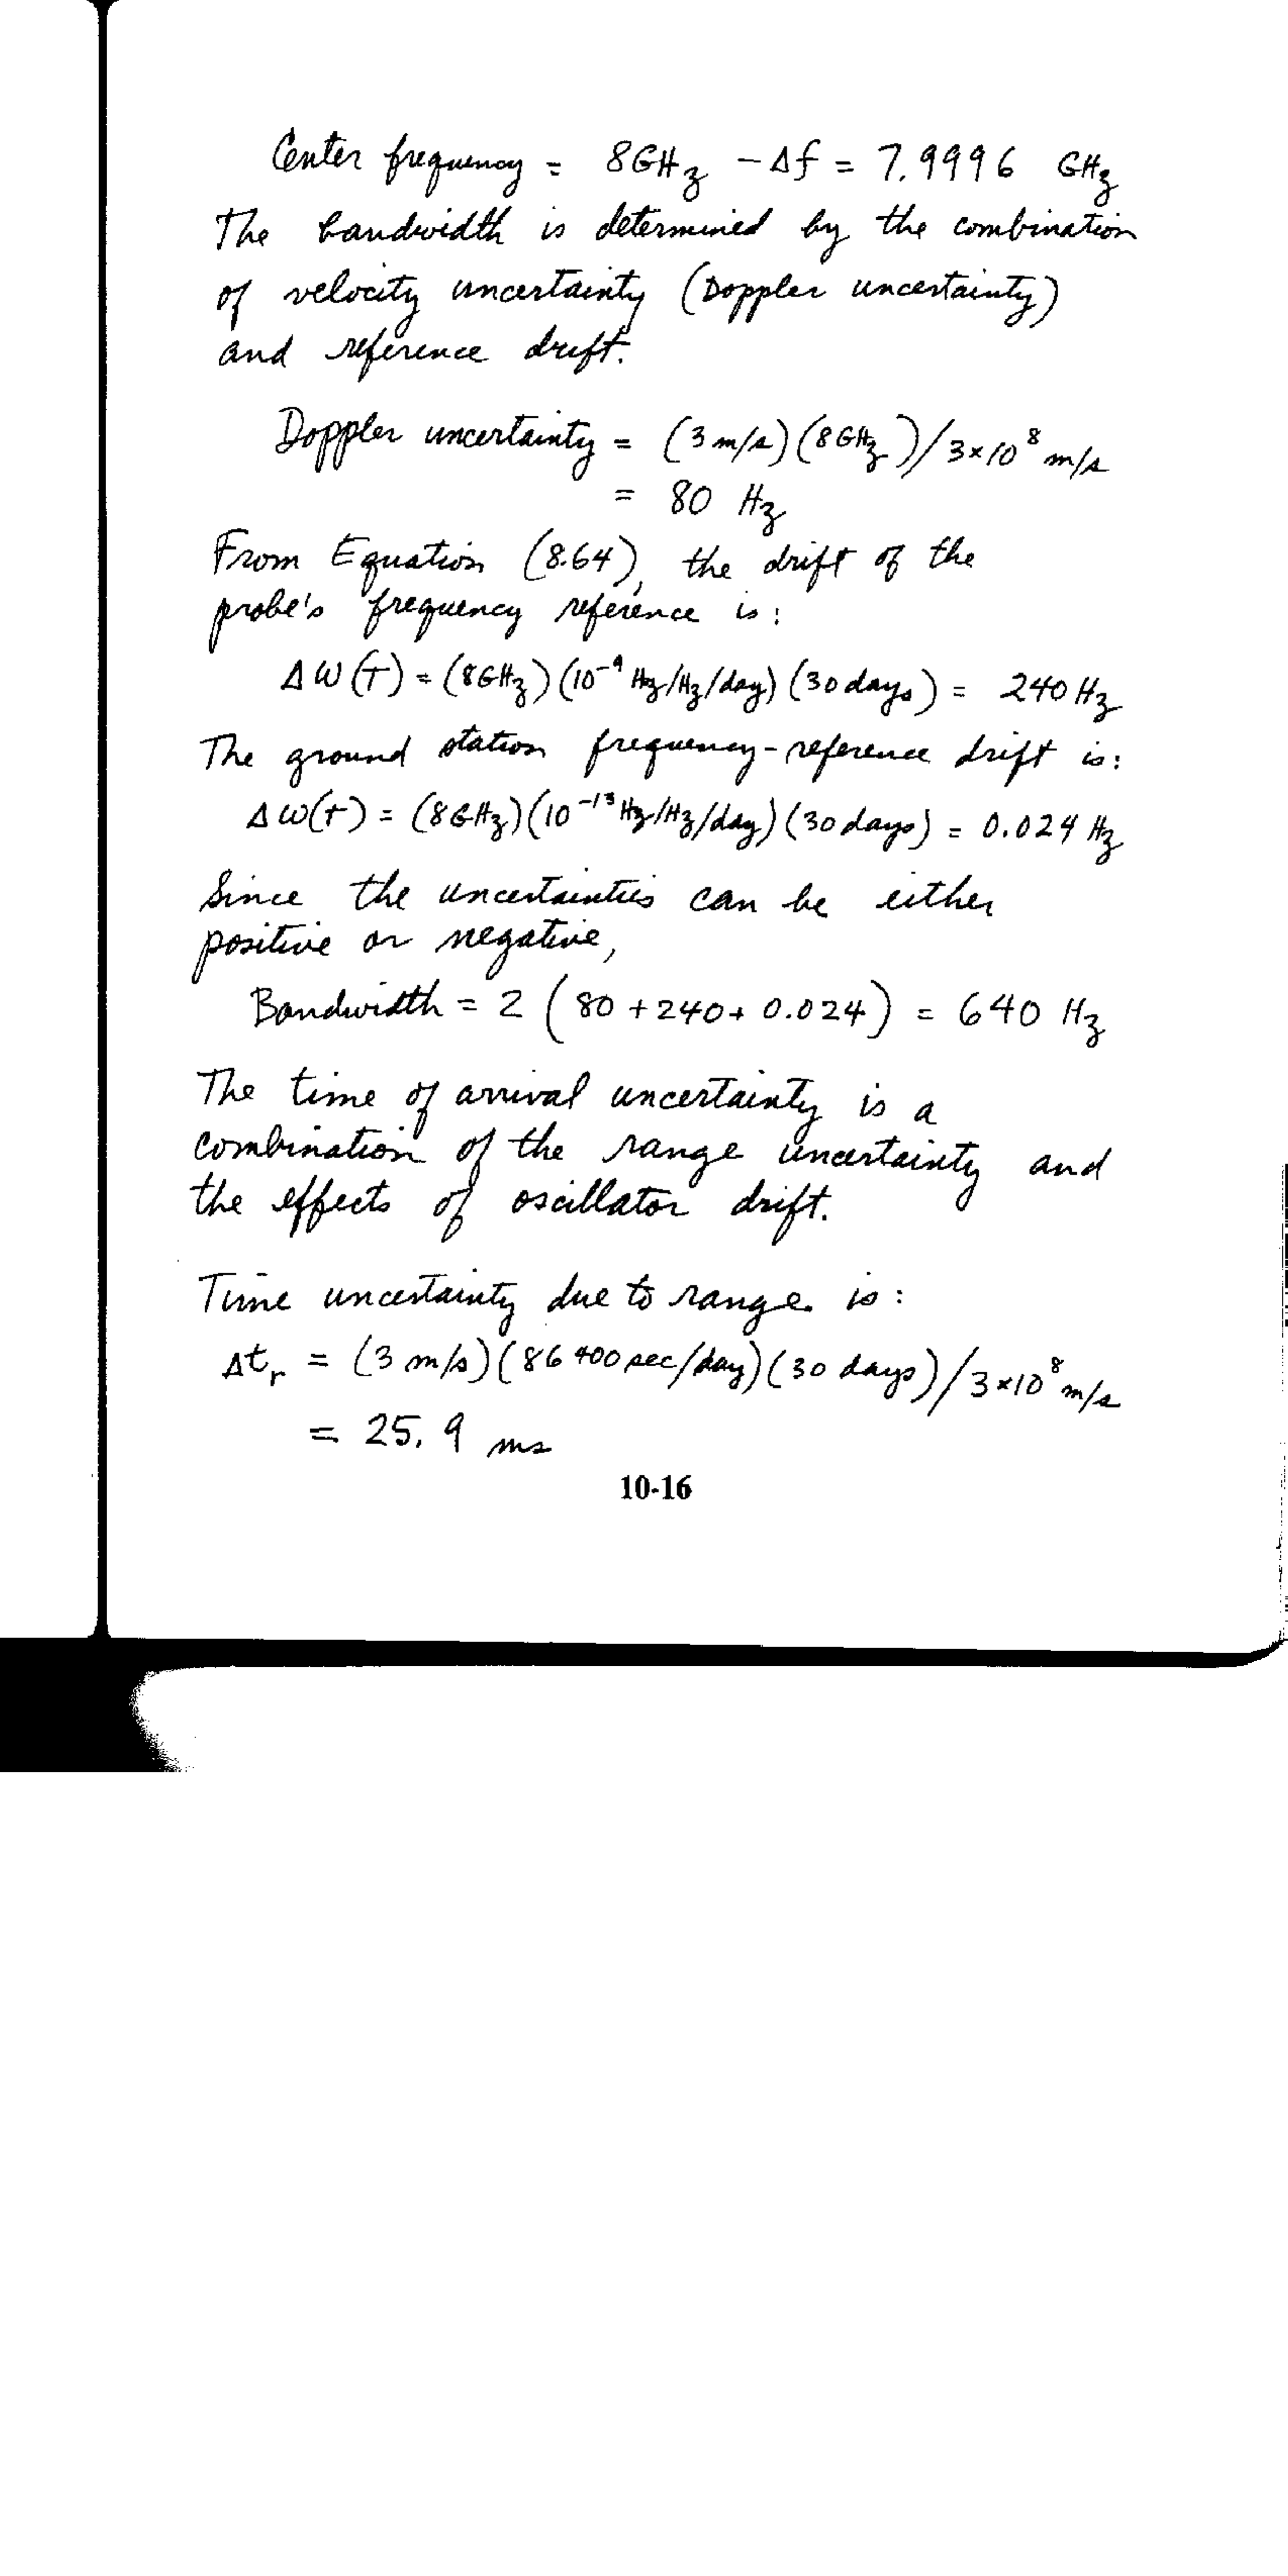 Center frequency = 8GHz - Δf = 7.9996 GHz
The bandwidth is determined by the combination
of velocity uncertainty (Doppler uncertainty)
and reference drift.
Doppler uncertainty = (3 m/s)(8GHz)/3×10⁸ m/s
= 80 Hz
From Equation (8.64), the drift of the
probe's frequency reference is:
Δω(T) = (8GHz)(10⁻⁹ Hz/Hz/day)(30 days) = 240 Hz
The ground station frequency-reference drift is:
Δω(t) = (8GHz)(10⁻¹³ Hz/Hz/day)(30 days) = 0.024 Hz
Since the uncertainties can be either
positive or negative,
Bandwidth = 2 (80 + 240 + 0.024) = 640 Hz
The time of arrival uncertainty is a
combination of the range uncertainty and
the effects of oscillator drift.
Time uncertainty due to range is:
Δtᵣ = (3 m/s)(86400 sec/day)(30 days)/3×10⁸ m/s
= 25.9 ms
10-16